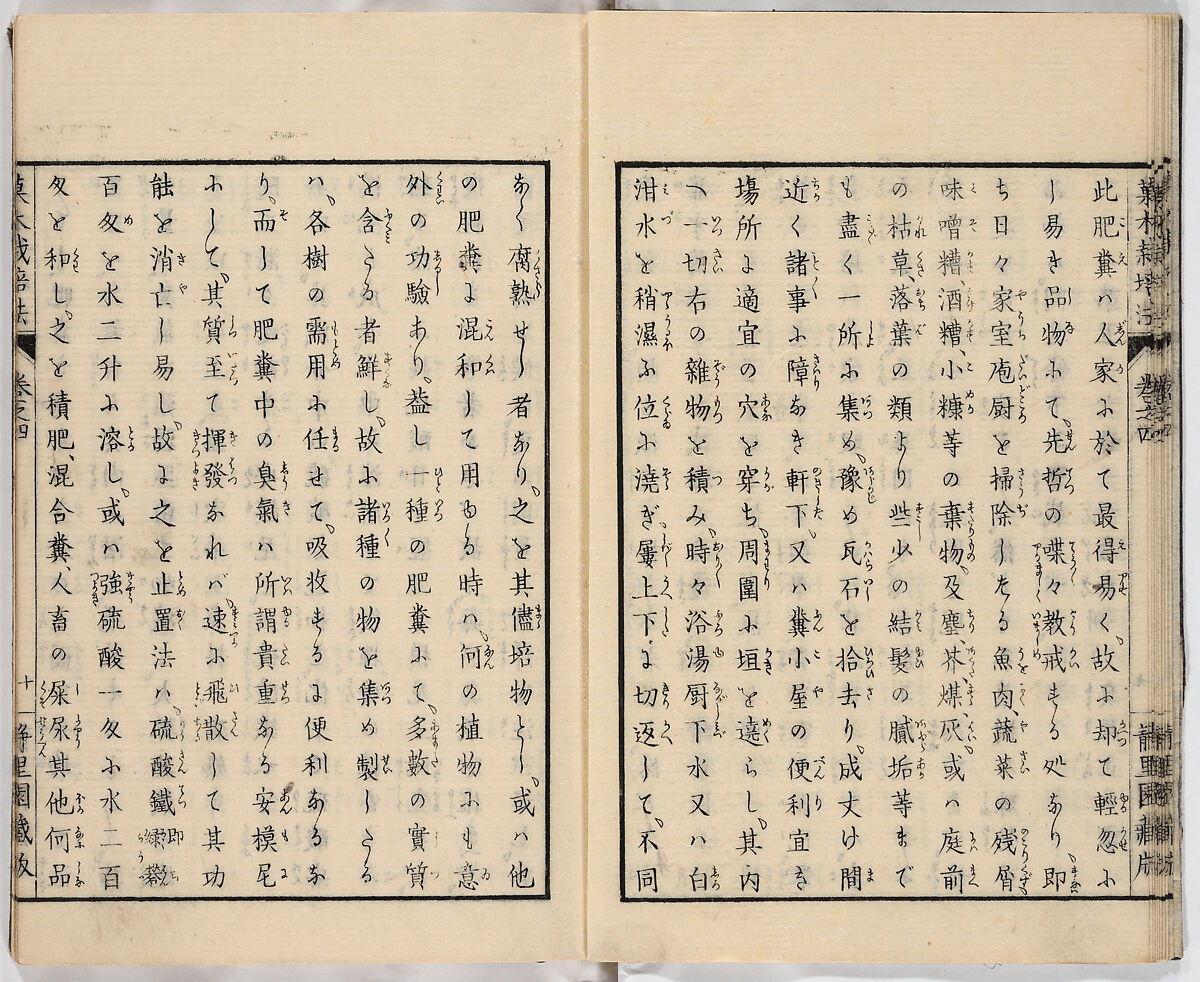 此肥糞ハ人家ニ於て最得易く、故ニ却て輕忽ニ
し易き品物ニて、先哲の喋々教戒する処なり、即
ち日々家室庖厨を掃除したる魚肉、蔬菜の残屑
味噌糟、酒糟、小糠等の棄物、及塵芥、煤灰、或ハ庭前
の枯草、落葉の類より些少の結髪の膩垢等まで
も盡く一所ニ集め、豫め瓦石を拾去り、成丈け間
近く諸事ニ障なき軒下、又ハ糞小屋の便利宜き
場所に適宜の穴を穿ち、周圍ニ垣を遶らし、其内
へ一切右の雜物を積み、時々浴湯厨下水又ハ白
泔水を稍濕ふ位ニ澆ぎ、屢上下に切返して、不同
なく腐熟せし者なり、之を其儘培物とし、或ハ他
の肥糞に混和して用ゐる時ハ、何の植物ニも意
外の功驗あり、益し一種の肥糞ニて、多數の實質
を含たる者鮮し、故ニ諸種の物を集め製したる
ハ、各樹の需用ニ任せて、吸收するに便利なるな
り、而して肥糞中の臭氣ハ所謂貴重なる安模尼
ニして、其質至て揮發なれバ、速ニ飛散して其功
能を消亡し易し、故に之を止置法ハ、硫酸鐵即緑礬
百匁を水二升ニ溶し、或ハ強硫酸一匁ニ水二百
匁を和し、之を積肥、混合糞、人畜の屎尿其他何品
菓木栽培法 卷之四 十一 靜里園藏板